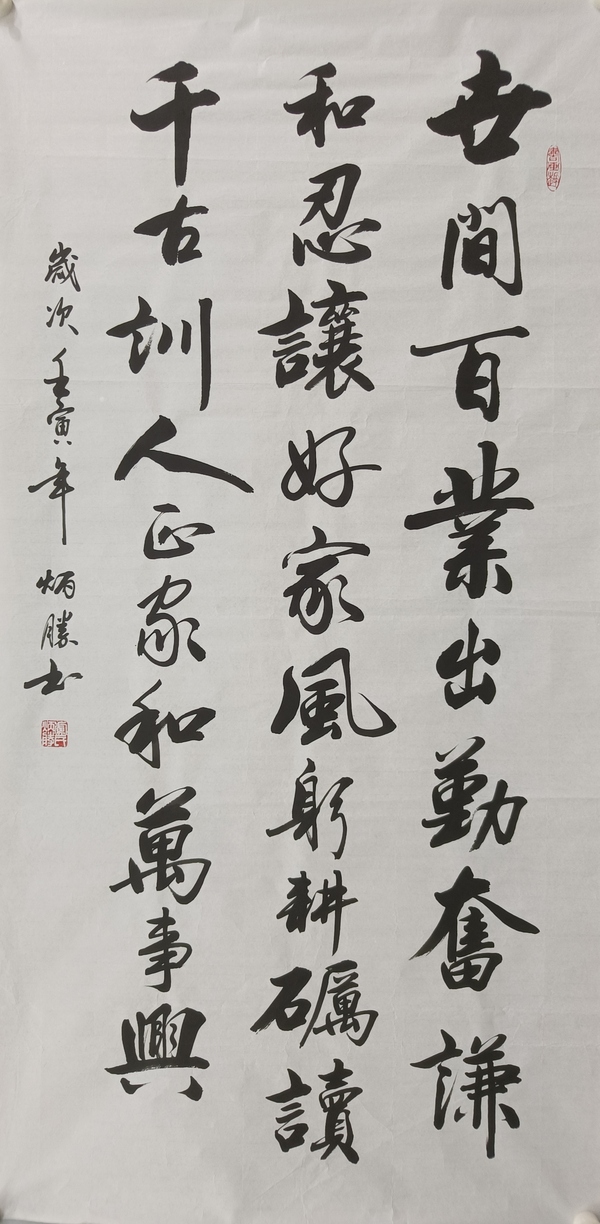 世間百業出勤奮謙
和忍讓好家風躬耕礪讀
千古訓人正家和萬事興
歲次壬寅年炳勝书